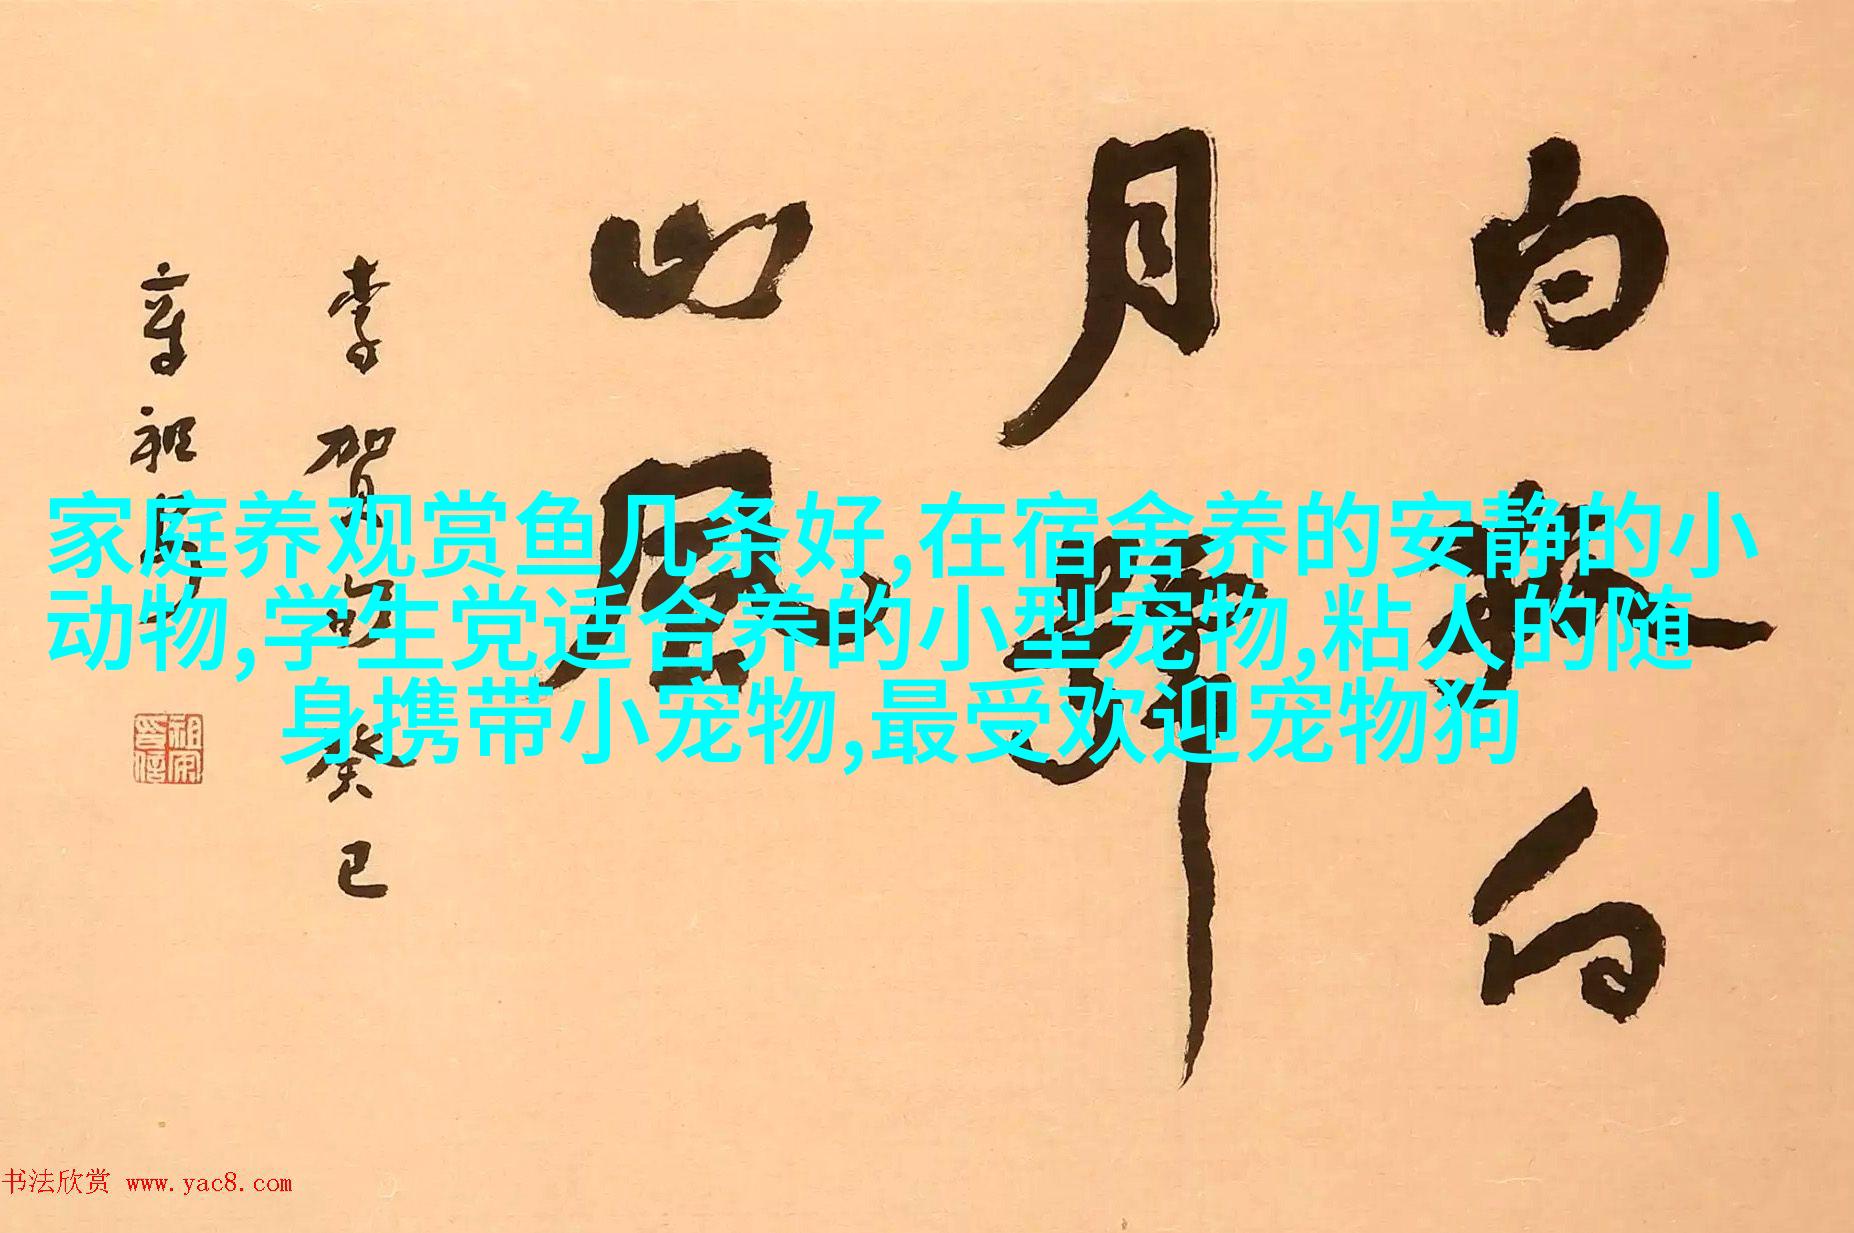 白狐向
月號
山風
李賀句 癸巳
章祖安
祖安印信
家庭养观赏鱼几条好,在宿舍养的安静的小
动物,学生党适合养的小型宠物,粘人的随
身携带小宠物,最受欢迎宠物狗
书法欣赏 www.yac8.com